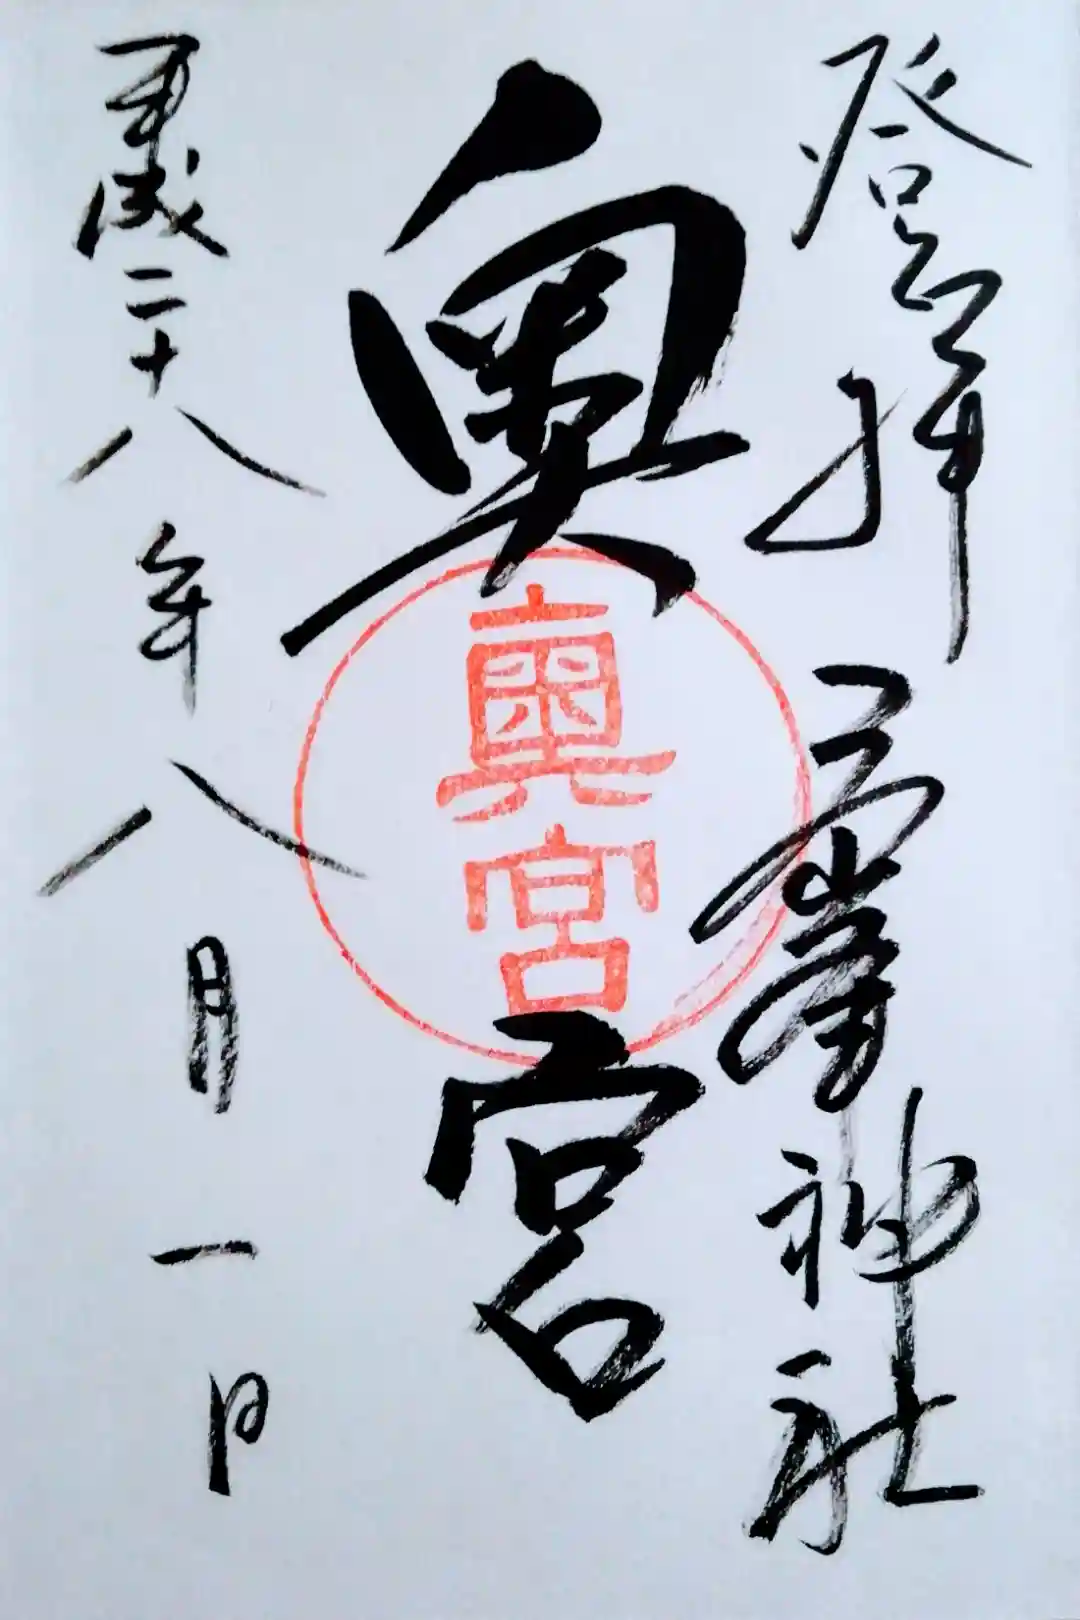 登拝 三峯神社
奥宮
奥宮
平成二十八年八月一日